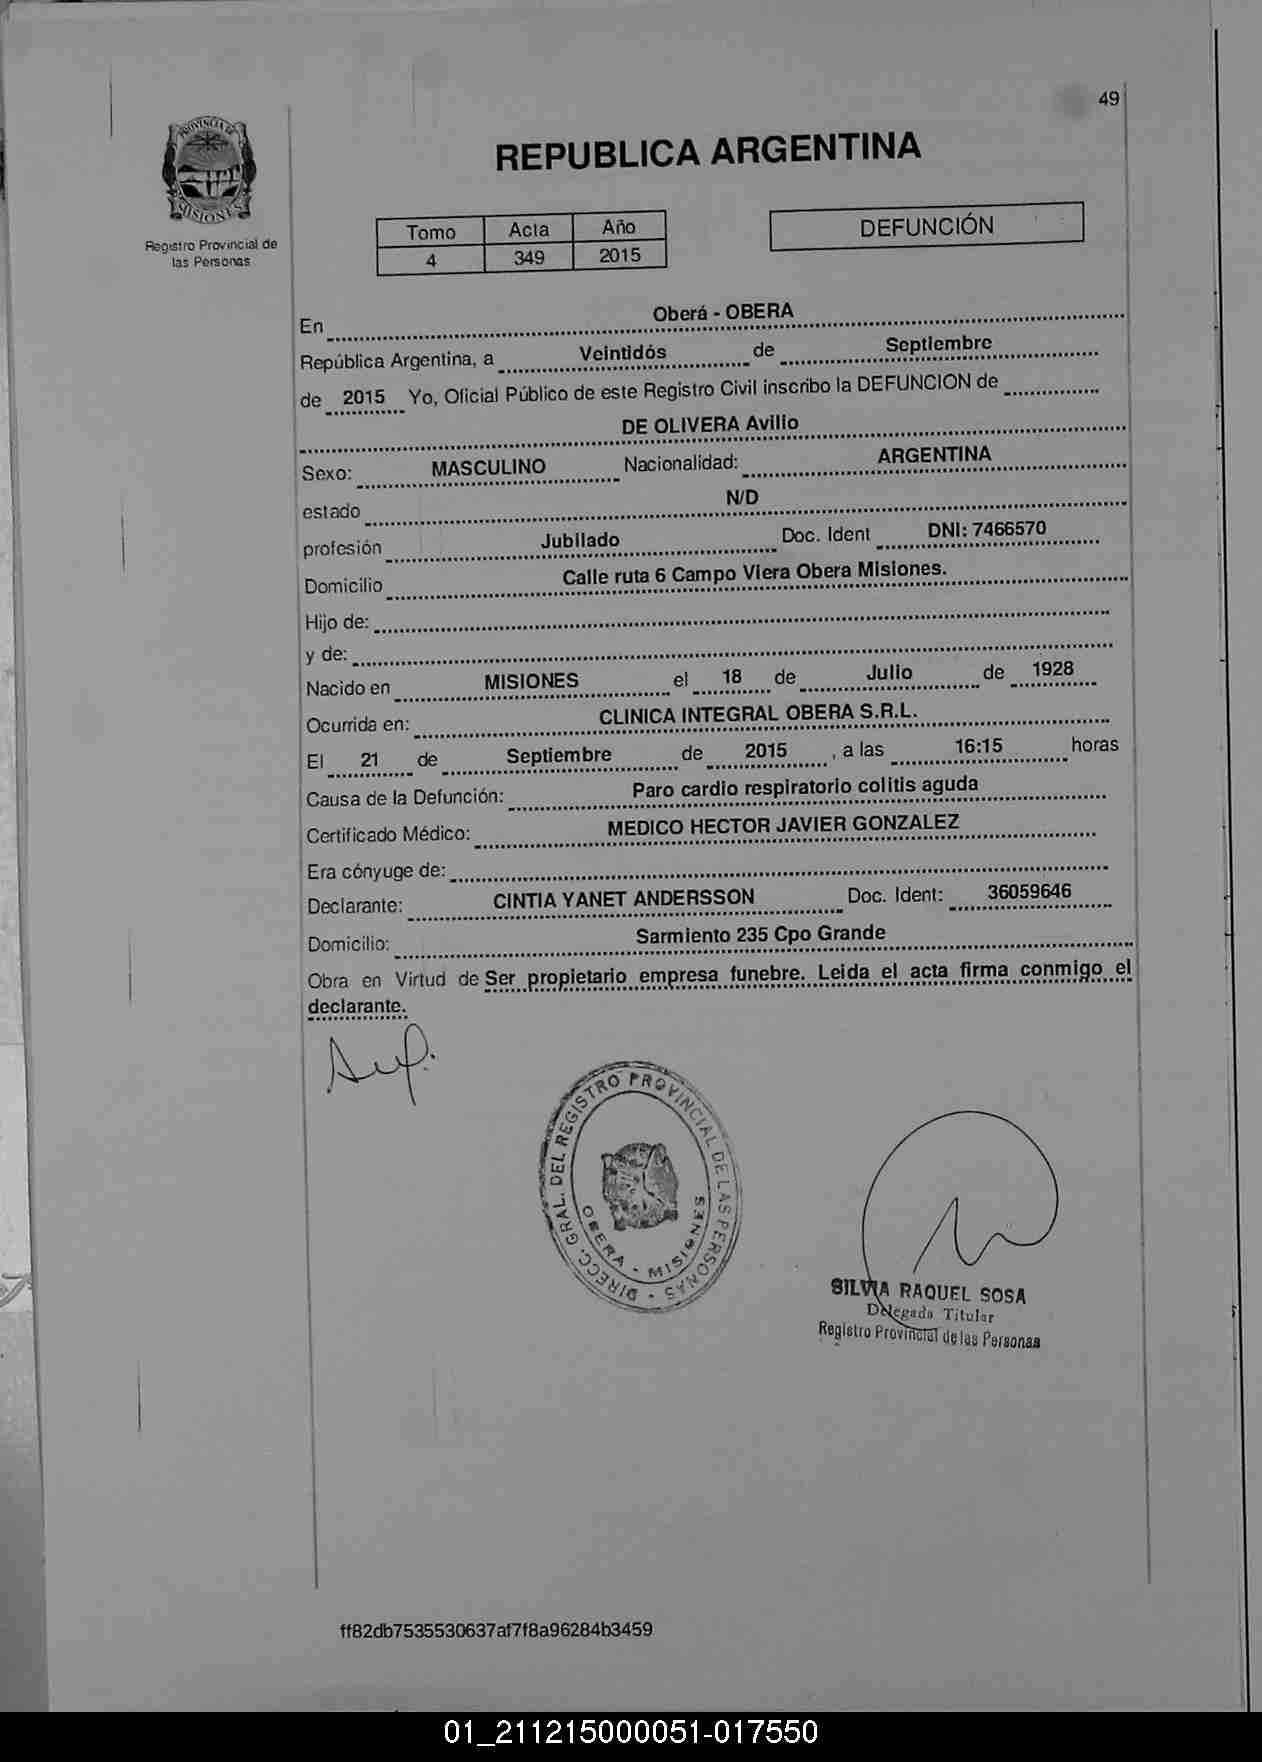 49
PROVINCIA DE
MISIONES
Registro Provincial de
las Personas
REPUBLICA ARGENTINA
Tomo Acta Año
4 349 2015
DEFUNCIÓN
En Oberá - OBERA
República Argentina, a Veintidós de Septiembre
de 2015 Yo, Oficial Público de este Registro Civil inscribo la DEFUNCION de
DE OLIVERA Avilio
Sexo: MASCULINO Nacionalidad: ARGENTINA
estado N/D
profesión Jubilado Doc. Ident DNI: 7466570
Domicilio Calle ruta 6 Campo Viera Obera Misiones.
Hijo de:
y de:
Nacido en MISIONES el 18 de Julio de 1928
Ocurrida en: CLINICA INTEGRAL OBERA S.R.L.
El 21 de Septiembre de 2015 , a las 16:15 horas
Causa de la Defunción: Paro cardio respiratorio colitis aguda
Certificado Médico: MEDICO HECTOR JAVIER GONZALEZ
Era cónyuge de:
Declarante: CINTIA YANET ANDERSSON Doc. Ident: 36059646
Domicilio: Sarmiento 235 Cpo Grande
Obra en Virtud de Ser propietario empresa funebre. Leida el acta firma conmigo el
declarante.
DIRECC. GRAL. DEL REGISTRO PROVINCIAL DE LAS PERSONAS -
OBERA - MISIONES
SILVIA RAQUEL SOSA
Delegada Titular
Registro Provincial de las Personas
ff82db7535530637af7f8a96284b3459
01_211215000051-017550